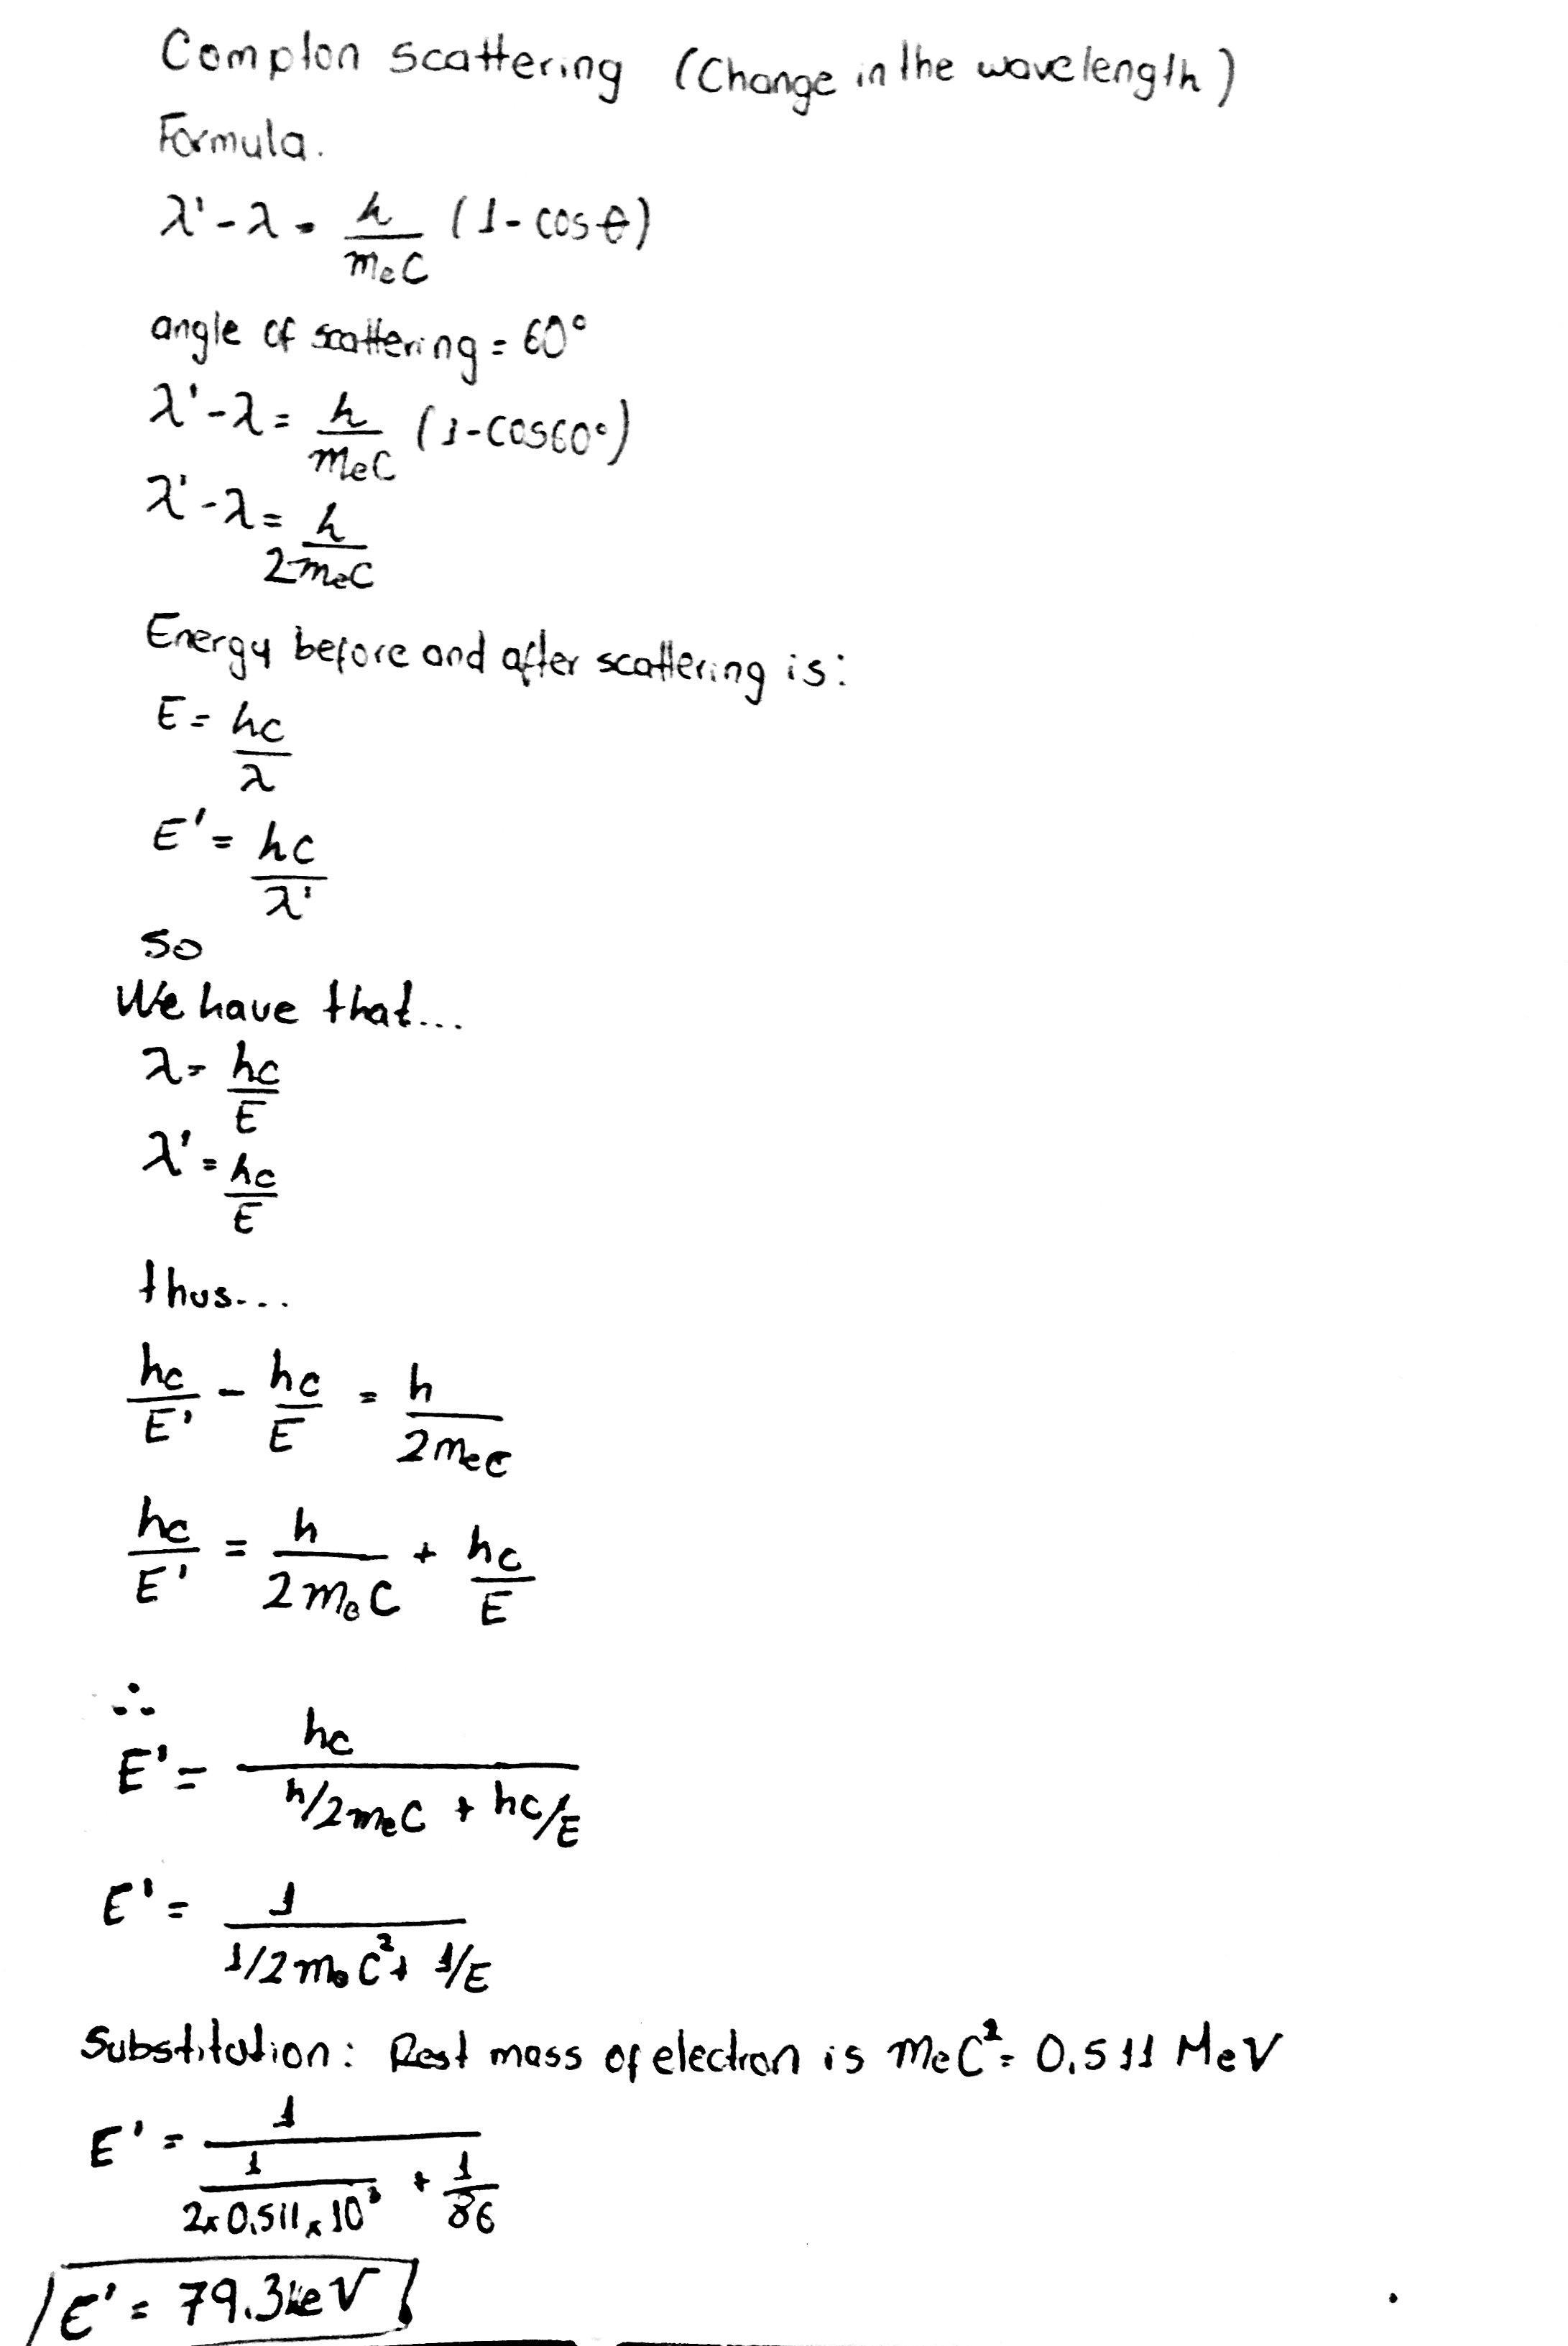 Compton scattering (Change in the wavelength)
Formula.
λ' - λ = h/meC (1 - cosθ)
angle of scattering = 60°
λ' - λ = h/meC (1 - cos60°)
λ' - λ = h/2meC
Energy before and after scattering is:
E = hc/λ
E' = hc/λ'
so
We have that...
λ = hc/E
λ' = hc/E
thus...
hc/E' - hc/E = h/2meC
hc/E' = h/2meC + hc/E
∴
E' = hc/(h/2meC + hc/E)
E' = 1/(1/2meC² + 1/E)
Substitution: Rest mass of electron is meC² = 0.511 MeV
E' = 1/(1/(2x0.511x10³) + 1/86)
E' = 79.3keV